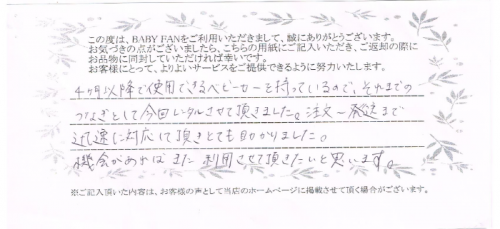 この度は、BABY FANをご利用いただきまして、誠にありがとうございます。
お気づきの点がございましたら、こちらの用紙にご記入いただき、ご返却の際に
お品物に同封していただければ幸いです。
お客様にとって、よりよいサービスをご提供できるように努力いたします。
4ヶ月以降で使用できるベビーカーを持っているので、それまでの
つなぎとして今回レンタルさせて頂きました。注文〜発送まで
迅速に対応して頂きとても助かりました。
機会があればまた利用させて頂きたいと思います。
※ご記入頂いた内容は、お客様の声として当店のホームページに掲載させて頂く場合がございます。